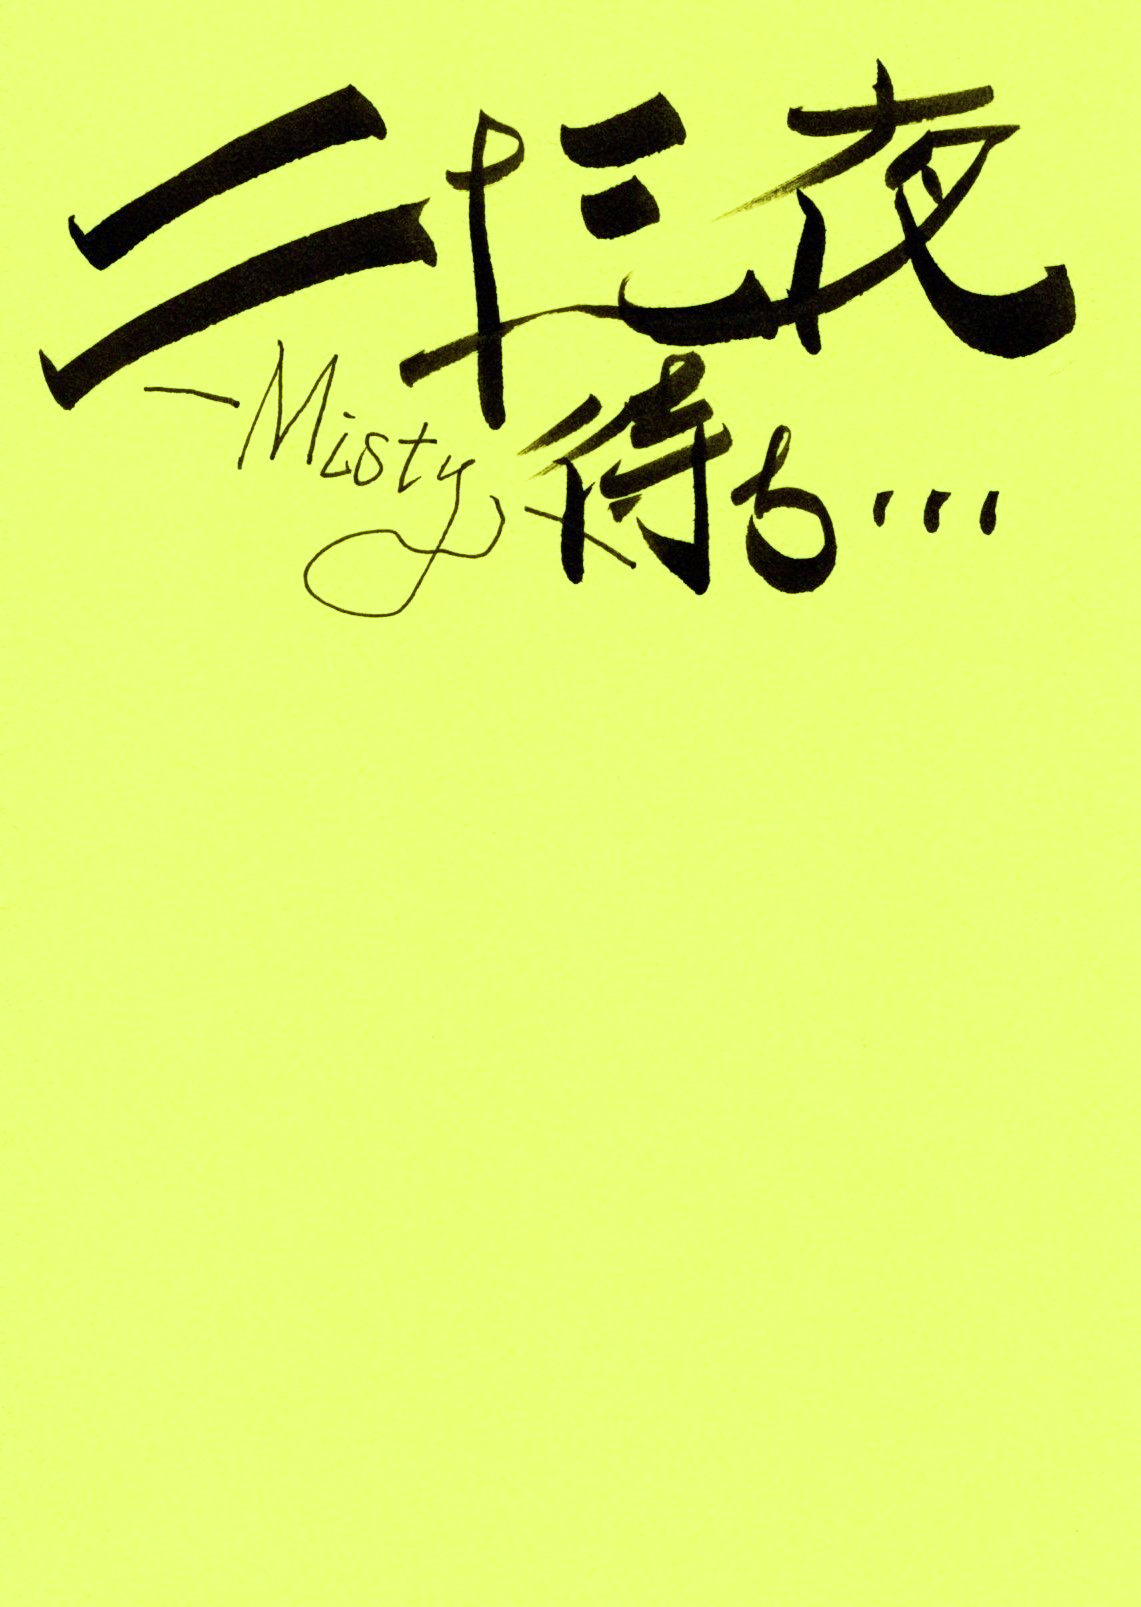 二十三夜
待ち・・・
－Misty－